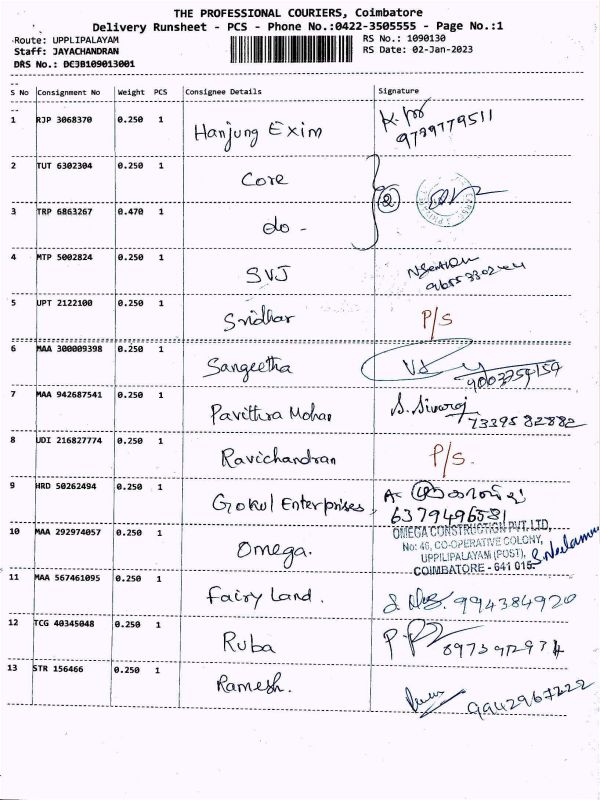 THE PROFESSIONAL COURIERS, Coimbatore
Delivery Runsheet - PCS - Phone No.:0422-3505555 - Page No.:1
Route: UPPLIPALAYAM RS No.: 1090130
Staff: JAYACHANDRAN RS Date: 02-Jan-2023
DRS No.: DCJB109013001
S No Consignment No Weight PCS Consignee Details Signature
1 RJP 3068370 0.250 1 Hanjung Exim
9789779511
2 TUT 6302304 0.250 1 Core
2
3 TRP 6863267 0.470 1 do -
4 MTP 5002824 0.250 1 SVJ
5 UPT 2122100 0.250 1 Sridhar P/S
6 MAA 300009398 0.250 1 Sangeetha
9003754154
7 MAA 942687541 0.250 1 Pavithra Mohan S. Sivaraj
7339582882
8 UDI 216827774 0.250 1 Ravichandran P/S.
9 HRD 50262494 0.250 1 Gokul Enterprises
6379496531
10 MAA 292974057 0.250 1 Omega.
OMEGA CONSTRUCTION PVT. LTD,
No: 46, CO-OPERATIVE COLONY,
UPPILIPALAYAM (POST),
COIMBATORE - 641 015
11 MAA 567461095 0.250 1 Fairy Land. 994384920
12 TCG 40345048 0.250 1 Ruba
13 STR 156466 0.250 1 Ramesh. 9942967222